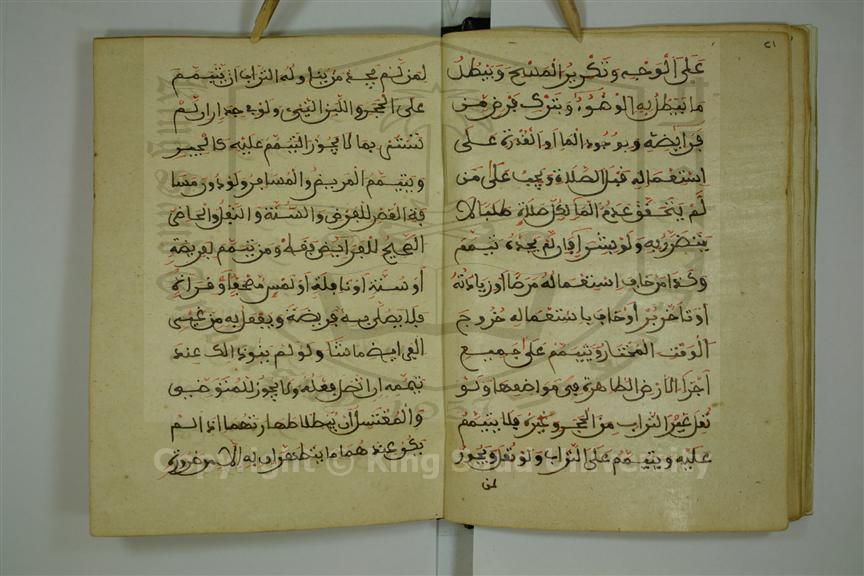 ٢١
على الوجه وتكرير المسح ويبطل
ما يبطل به الوضوء وبترك فرض من
فرايضه وبوجود الماء أو القدرة على
استعماله قبل الصلاة ويجب على من
لم يتحقق عدم الما لكل صلاة طلبا لا
يتضرر به ولو بشرا فإن لم يجده تيمم
وكذا من خاف استعماله مرضا أو زيادته
أو تأخر برء أو خاف باستعماله خروج
الوقت المختار ويتيمم على جميع
أجزا الأرض الطاهرة في مواضعها ولو
نقل غير التراب من الحجر وغيره فلا يتيمم
عليه ويتيمم على التراب ولو نقل ويجوز
لمن
لمن لم يجد من يناوله التراب أن يتيمم
على الحجر واللبن النيئ ولو جدارا إن لم
تستتر بما لا يجوز التيمم عليه كالجير
ويتيمم المريض والمسافر ولو دون مسا
فة القصر للفرض والسنة والنفل والحاضر
الصحيح للفرايض فقط ومن تيمم لفريضة
أو سنة أو نافلة أو لمس مصحف أو قراءة
فلا يصلي به فريضة ويفعل به من غير
الفرايض ما شا ولو لم ينو ذالك عند
تيممه إن اتصل بفعله ولا يجوز للمتوضي
والمغتسل أن يبطلا طهارتهما إذا لم
يكن عندهما ما يتطهران به إلا من ضرورة
Copyright © King Saud University